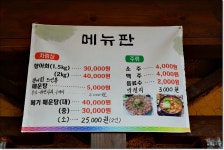 메뉴판
차림상
향어회(1.5kg) 30,000원
(2kg) 40,000원
매운탕 5,000원
메기 매운탕(대) 40,000원
(중) 30,000원
(소) 25,000원
주류
소 주 4,000원
맥 주 4,000원
음료수 2,000원
3,000원